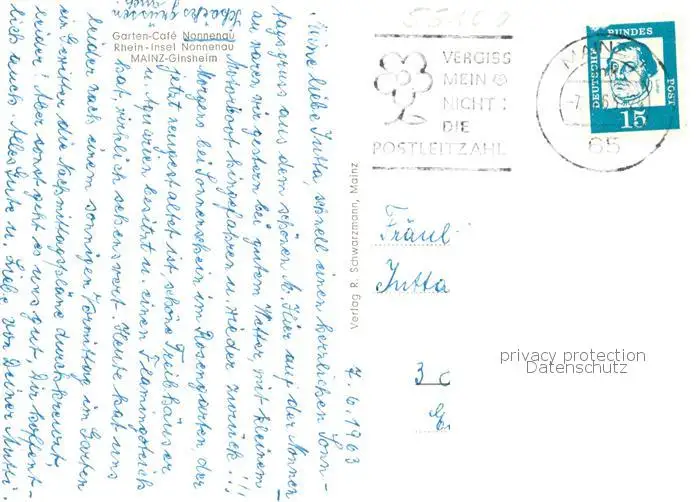 Garten-Café Nonnenau
Rhein-Insel Nonnenau
MAINZ-Ginsheim
VERGISS
MEIN
NICHT:
DIE
POSTLEITZAHL
MAINZ
65
DEUTSCHE
BUNDES
POST
15
Verlag R. Schwarzmann, Mainz
7.6.1963
Meine liebe Jutta, schnell einen herzlichen Sonn-
tagsgruss aus dem schönen M. Hier auf der Nonnen-
au waren wir gestern bei gutem Wetter, mit kleinem
Motorboot hingefahren u. wieder zurück !!!
Morgens bei Sonnenschein im Rosengarten, der
jetzt neugestaltet ist, schöne Treibhäuser
u. Aquarien besitzt u. einen Flamingoteich
hat, wirklich sehenswert. Heute hat uns
leider nach einem sonnigen Vormittag im Garten
ein Gewitter die Nachmittagspläne durchkreuzt,
leider! Aber sonst geht es uns gut, Dir hoffent-
lich auch. Alles Gute u. Liebe von Deiner Mutti.
grüssen
Fräul
Jutta
3
privacy protection
Datenschutz